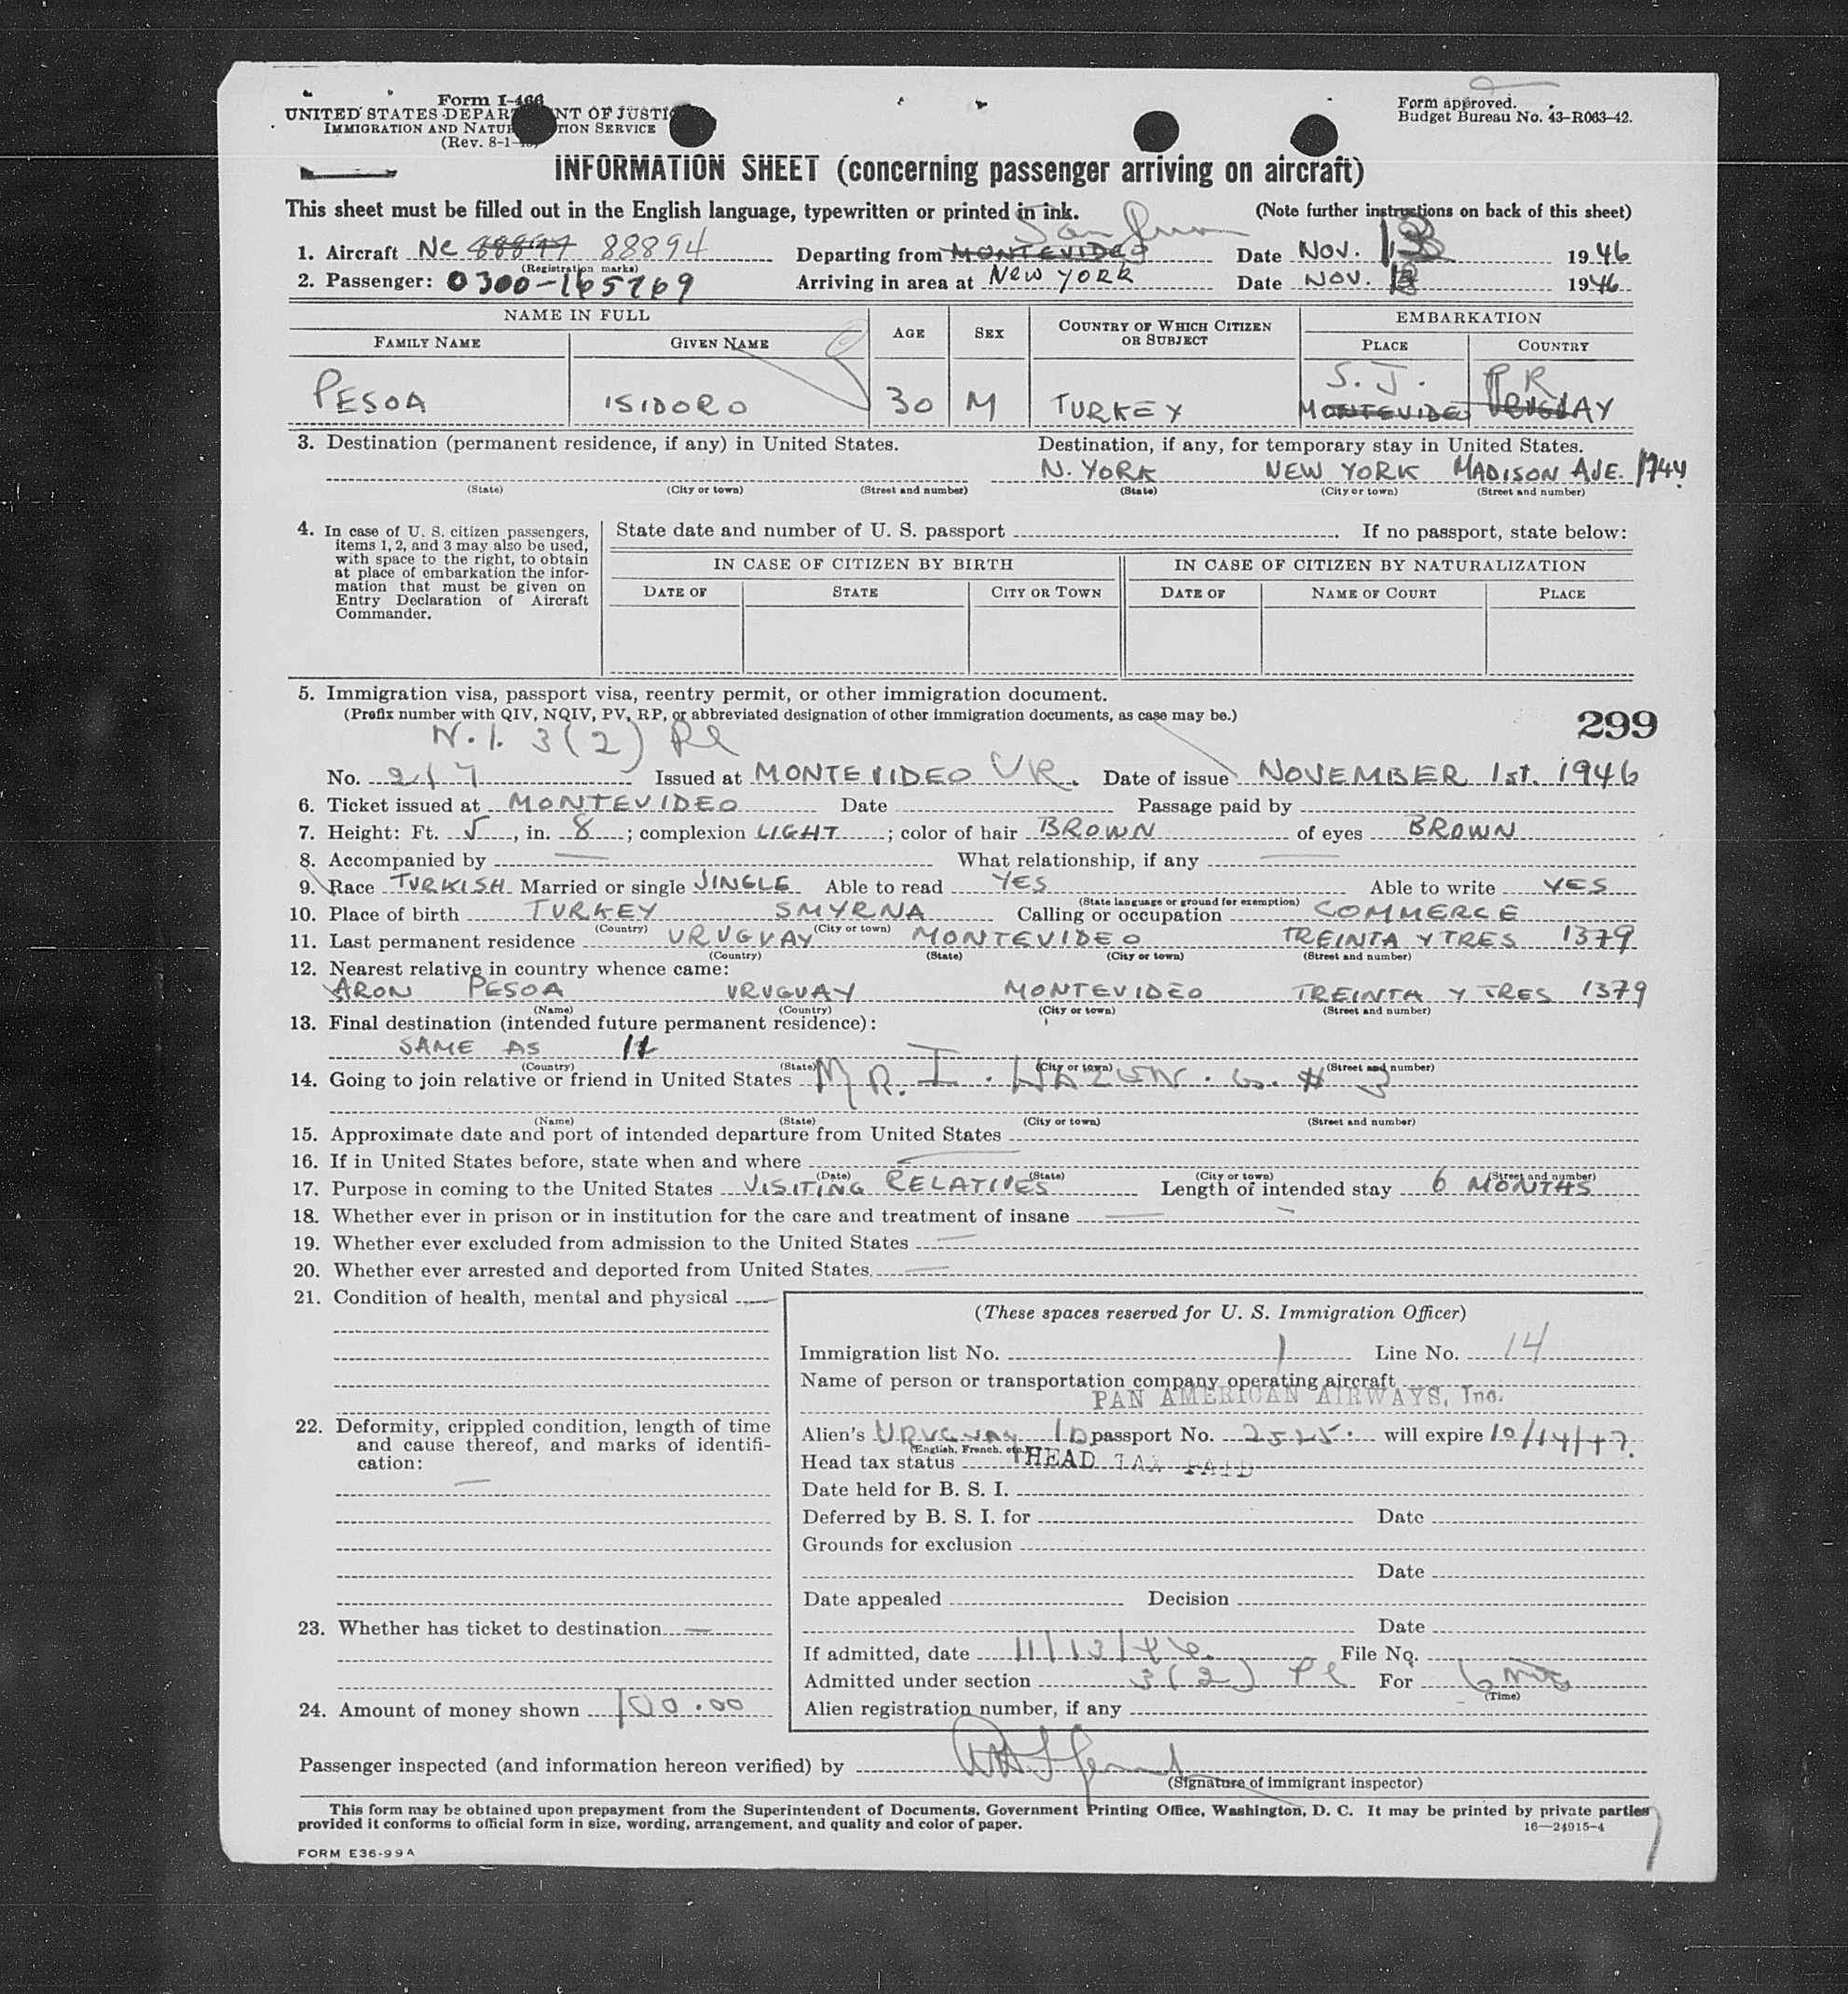 Form I-466
UNITED STATES DEPARTMENT OF JUSTICE
IMMIGRATION AND NATURALIZATION SERVICE
(Rev. 8-1-45)
Form approved.
Budget Bureau No. 43-R063-42.
INFORMATION SHEET (concerning passenger arriving on aircraft)
This sheet must be filled out in the English language, typewritten or printed in ink. (Note further instructions on back of this sheet)
San Juan
1. Aircraft NC 88897 88894 Departing from MONTEVIDEO Date NOV. 13 1946
(Registration marks)
2. Passenger: 0300-165769 Arriving in area at NEW YORK Date NOV. 13 1946
NAME IN FULL AGE SEX COUNTRY OF WHICH CITIZEN OR SUBJECT EMBARKATION
FAMILY NAME GIVEN NAME PLACE COUNTRY
S. J. P R
PESOA ISIDORO 30 M TURKEY MONTEVIDEO URUGUAY
3. Destination (permanent residence, if any) in United States. Destination, if any, for temporary stay in United States.
N. YORK NEW YORK MADISON AVE. 1744
(State) (City or town) (Street and number) (State) (City or town) (Street and number)
4. In case of U. S. citizen passengers,
items 1, 2, and 3 may also be used,
with space to the right, to obtain
at place of embarkation the infor-
mation that must be given on
Entry Declaration of Aircraft
Commander.
State date and number of U. S. passport If no passport, state below:
IN CASE OF CITIZEN BY BIRTH IN CASE OF CITIZEN BY NATURALIZATION
DATE OF STATE CITY OR TOWN DATE OF NAME OF COURT PLACE
5. Immigration visa, passport visa, reentry permit, or other immigration document.
(Prefix number with QIV, NQIV, PV, RP, or abbreviated designation of other immigration documents, as case may be.)
299
N. I. 3(2) Pl
No. 217 Issued at MONTEVIDEO UR. Date of issue NOVEMBER 1st. 1946
6. Ticket issued at MONTEVIDEO Date Passage paid by
7. Height: Ft. 5, in. 8; complexion LIGHT; color of hair BROWN of eyes BROWN
8. Accompanied by — What relationship, if any —
9. Race TURKISH Married or single SINGLE Able to read YES Able to write YES
(State language or ground for exemption)
10. Place of birth TURKEY SMYRNA Calling or occupation COMMERCE
(Country) (City or town)
11. Last permanent residence URUGUAY MONTEVIDEO TREINTA Y TRES 1379
(Country) (State) (City or town) (Street and number)
12. Nearest relative in country whence came:
ARON PESOA URUGUAY MONTEVIDEO TREINTA Y TRES 1379
(Name) (Country) (City or town) (Street and number)
13. Final destination (intended future permanent residence):
SAME AS 11
(Country) (State) (City or town) (Street and number)
14. Going to join relative or friend in United States MR. I. HAZEN. # 3
(Name) (State) (City or town) (Street and number)
15. Approximate date and port of intended departure from United States
16. If in United States before, state when and where —
(Date) (State) (City or town) (Street and number)
17. Purpose in coming to the United States VISITING RELATIVES Length of intended stay 6 MONTHS
18. Whether ever in prison or in institution for the care and treatment of insane —
19. Whether ever excluded from admission to the United States —
20. Whether ever arrested and deported from United States. —
21. Condition of health, mental and physical —
22. Deformity, crippled condition, length of time
and cause thereof, and marks of identifi-
cation:
—
23. Whether has ticket to destination —
24. Amount of money shown 100.00
(These spaces reserved for U. S. Immigration Officer)
Immigration list No. 1 Line No. 14
Name of person or transportation company operating aircraft
PAN AMERICAN AIRWAYS, Inc.
Alien's URUGUAY ID passport No. 2525. will expire 10/14/47.
(English, French, etc.)
Head tax status HEAD TAX PAID
Date held for B. S. I.
Deferred by B. S. I. for Date
Grounds for exclusion
Date
Date appealed Decision
Date
If admitted, date 11/13/46. File No.
Admitted under section 3(2) Pl For 6 mos
(Time)
Alien registration number, if any
Passenger inspected (and information hereon verified) by
(Signature of immigrant inspector)
This form may be obtained upon prepayment from the Superintendent of Documents, Government Printing Office, Washington, D. C. It may be printed by private parties
provided it conforms to official form in size, wording, arrangement, and quality and color of paper. 16—24915-4
FORM E36-99A